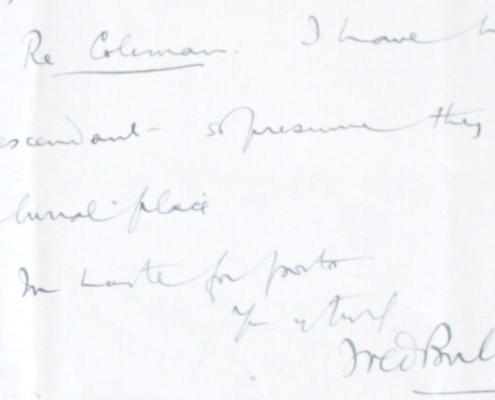 Re Coleman. I have
escendant - so presume they
burial place
In haste for post
Fred